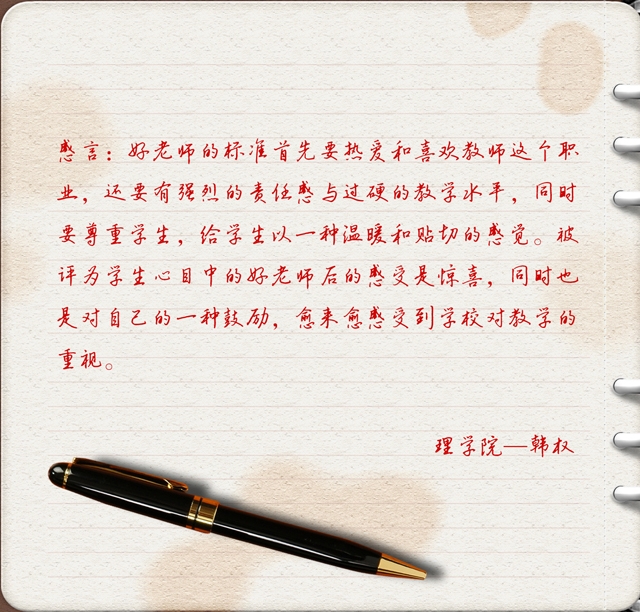 感言：好老师的标准首先要热爱和喜欢教师这个职
业，还要有强烈的责任感与过硬的教学水平，同时
要尊重学生，给学生以一种温暖和贴切的感觉。被
评为学生心目中的好老师后的感受是惊喜，同时也
是对自己的一种鼓励，愈来愈感受到学校对教学的
重视。
理学院—韩权